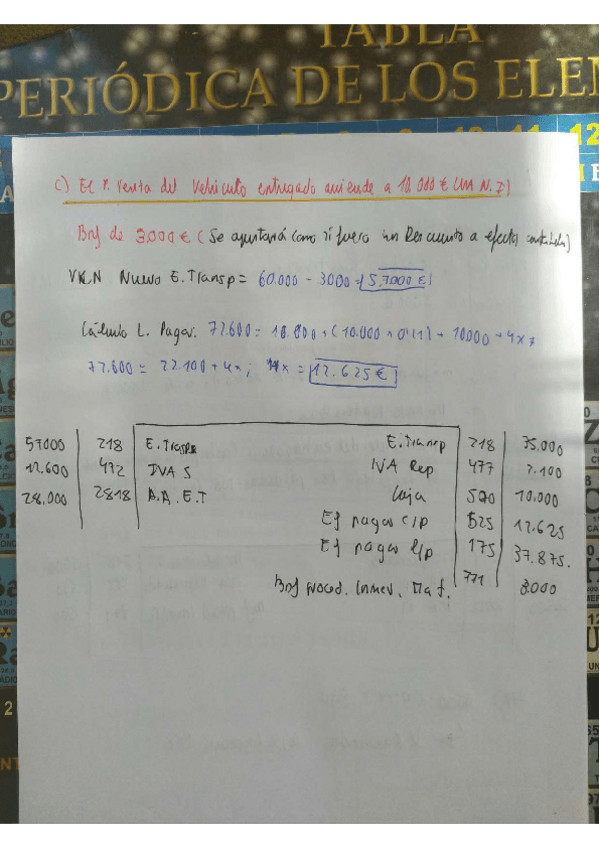 TABLA
PERIÓDICA DE LOS ELEM
11 12
C) El P. Venta del Vehiculo entregado asciende a 10.000 €
Bnf de 3.000 € (Se ajustará como si fuera un Descuento a efectos contables)
Nuevo E. Transp = 60.000 - 3000 = 57000 €
Cálculo L. Pagar. 72.600 =
4x = 12.625 €
57000 218 E. Transp E. Transp 218 35.000
12.600 472 IVA S IVA Rep 477 2.100
28.000 2818 A.A.E.T Caja 570 10.000
Ef pagar c/p 525 12.625
Ef pagar l/p 175 37.875.
Bnf proced. Inmov. Mat. 771 3.000